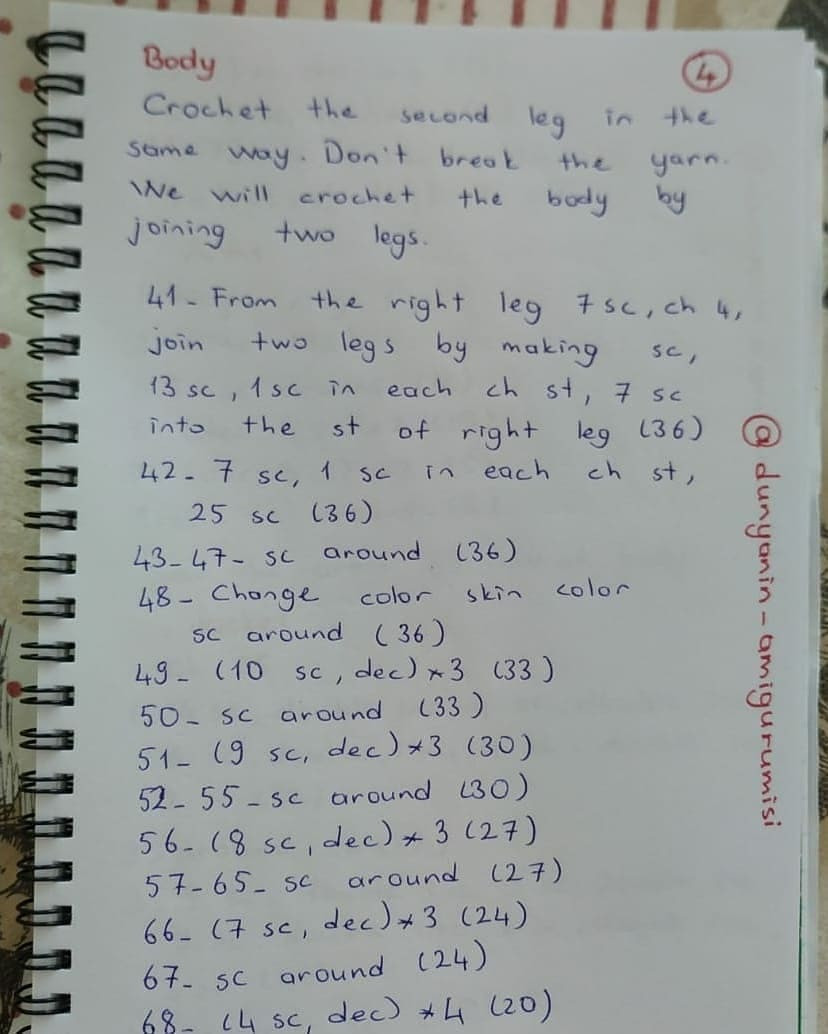 Body
4
Crochet the second leg in the
same way. Don't break the yarn.
We will crochet the body by
joining two legs.
41- From the right leg 7 sc, ch 4,
join two legs by making sc,
13 sc, 1 sc in each ch st, 7 sc
into the st of right leg (36)
42- 7 sc, 1 sc in each ch st,
25 sc (36)
43-47- sc around (36)
48- Change color skin color
sc around (36)
49- (10 sc, dec)*3 (33)
50- sc around (33)
51- (9 sc, dec)*3 (30)
52-55- sc around (30)
56- (8 sc, dec)*3 (27)
57-65- sc around (27)
66- (7 sc, dec)*3 (24)
67- sc around (24)
68- (4 sc, dec)*4 (20)
@dunyanin-amigurumisi